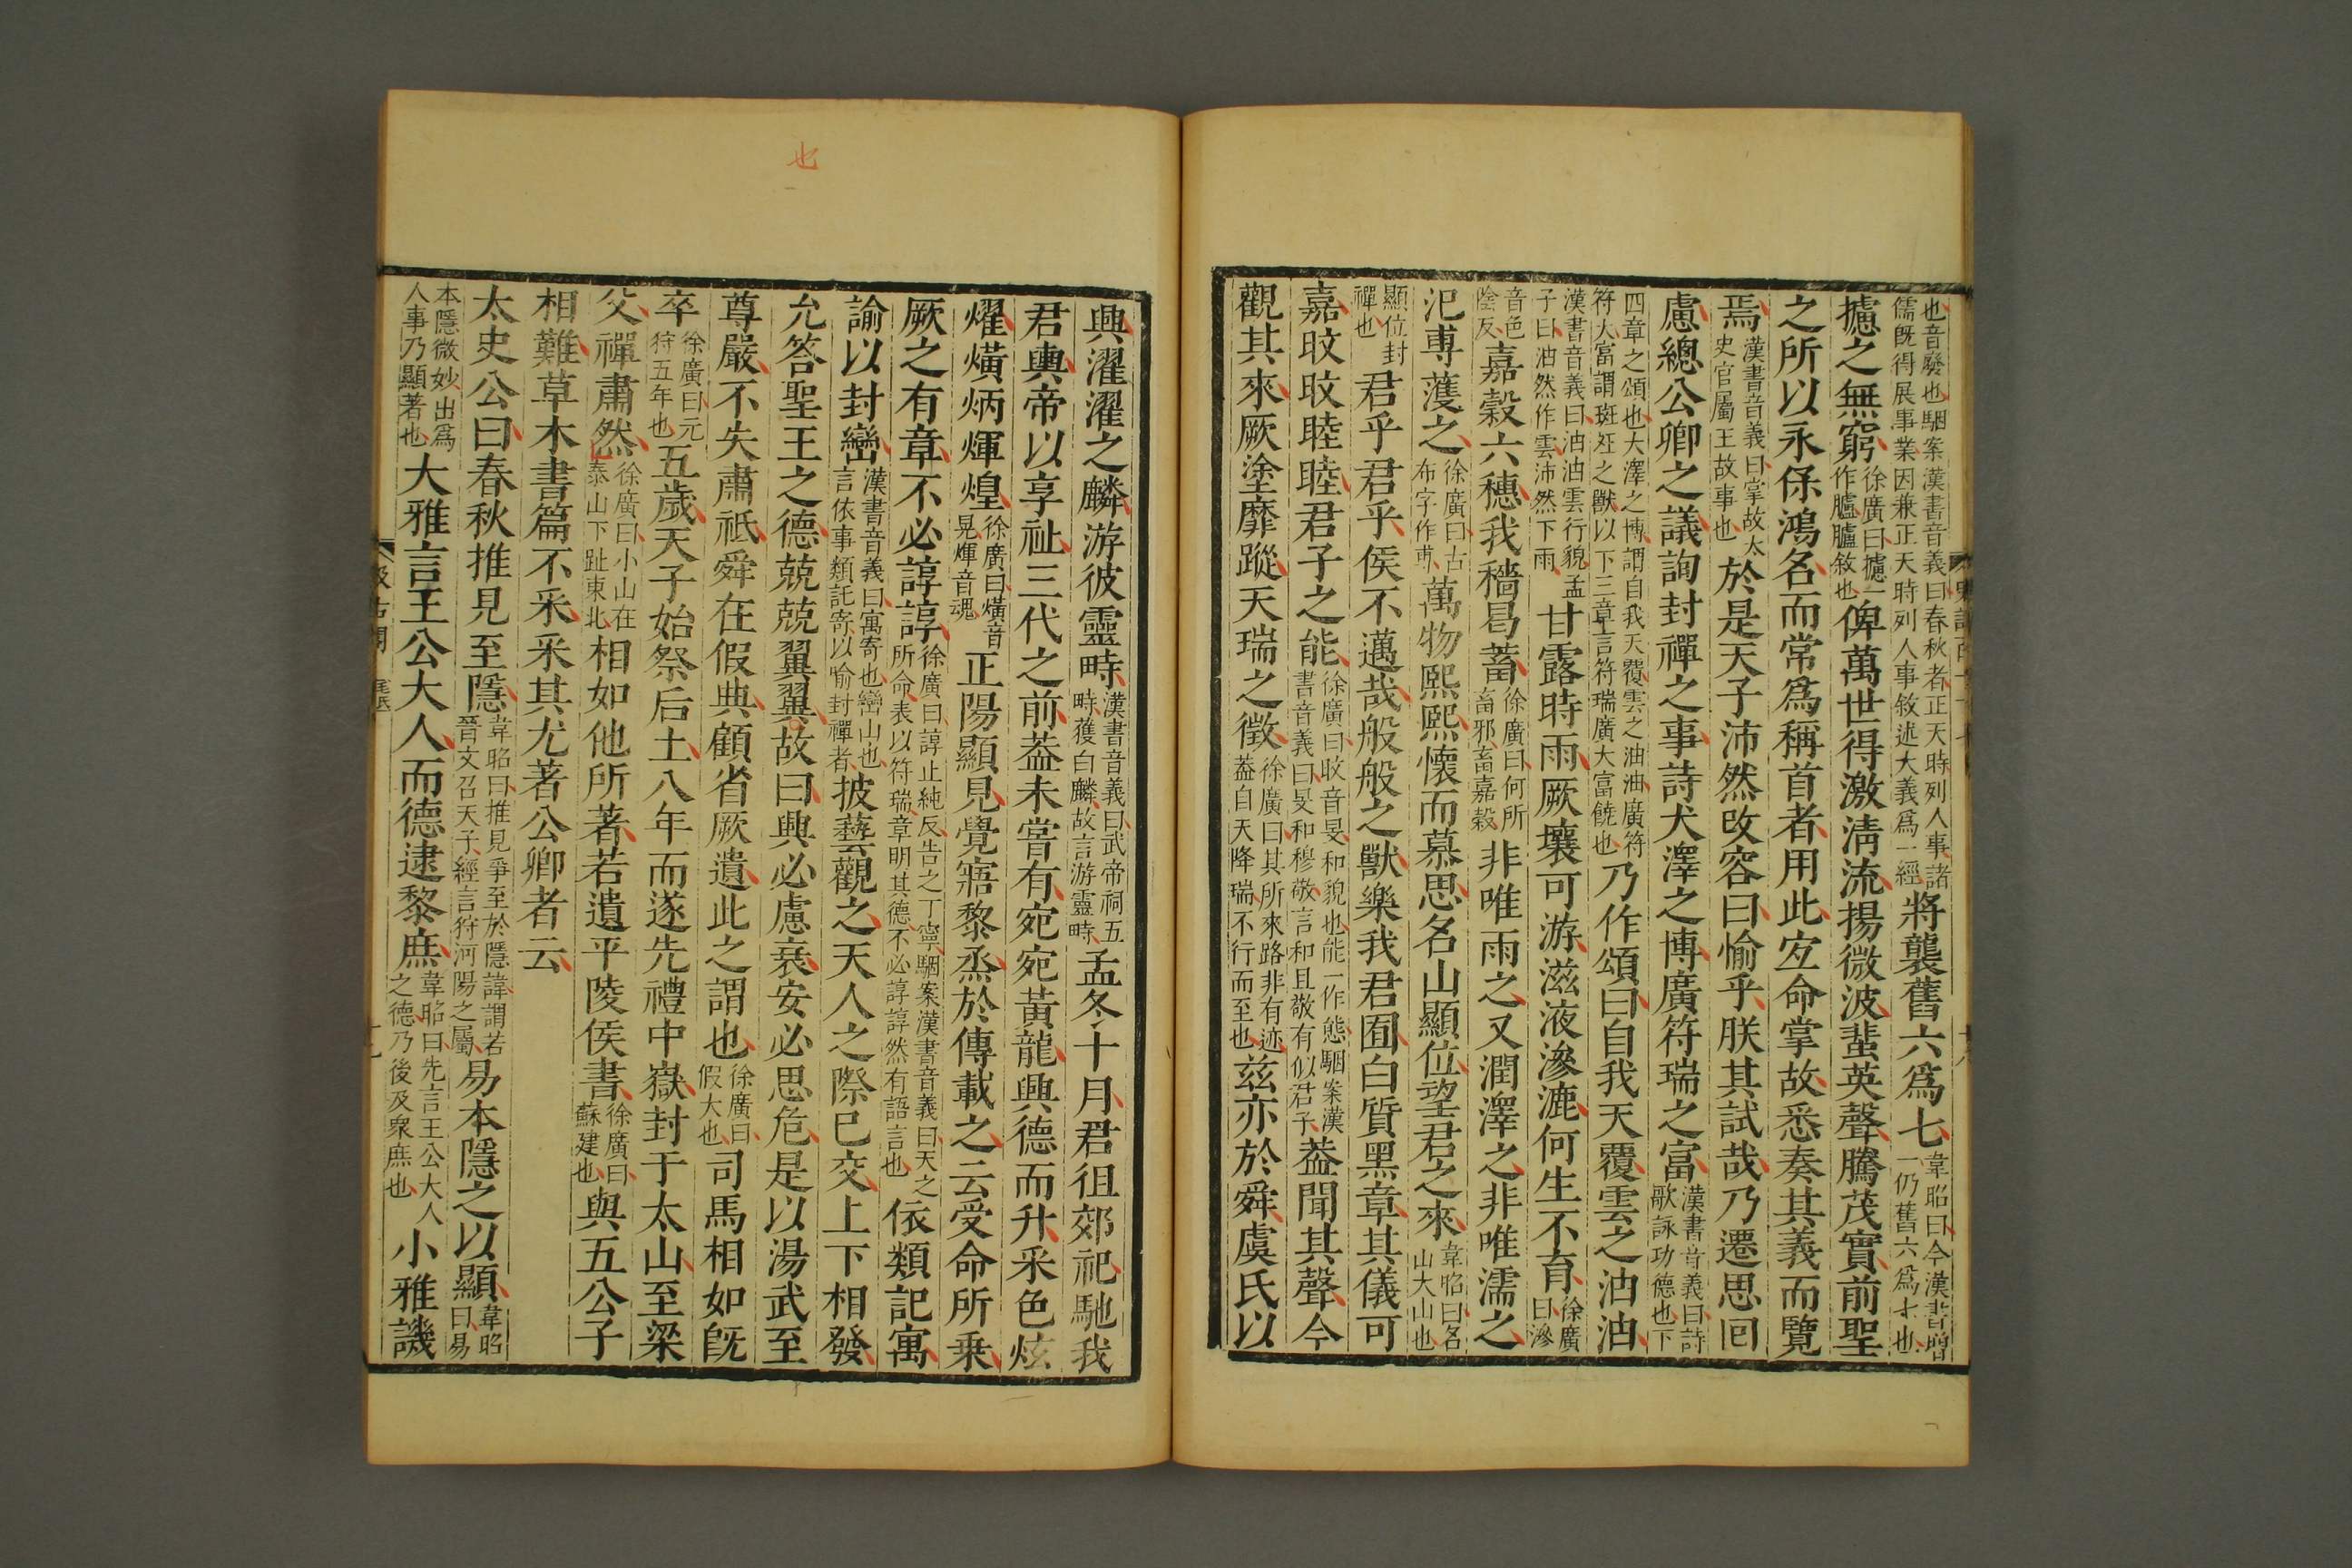 也音廢也駰案漢書音義曰春秋者正天時列人事諸
儒旣得展事業因兼正天時列人事敘述大義爲一經
將襲舊六爲七
韋昭曰今漢書增
一仍舊六爲七也
攄之無窮
徐廣曰攄一
作臚臚敘也
俾萬世得激淸流揚微波蜚英聲騰茂實前聖
之所以永保鴻名而常爲稱首者用此宐命掌故悉奏其義而覽
焉
漢書音義曰掌故太
史官屬王故事也
於是天子沛然改容曰愉乎朕其試哉乃遷思囘
慮總公卿之議詢封禪之事詩大澤之博廣符瑞之富
漢書音義曰詩
歌詠功德也下
四章之頌也大澤之博謂自我天覆雲之油油廣符
符大富謂斑斑之獸以下三章言符瑞廣大富饒也
乃作頌曰自我天覆雲之油油
漢書音義曰油油雲行貌孟
子曰油然作雲沛然下雨
甘露時雨厥壤可游滋液滲漉何生不育
徐廣
曰滲
音色
陰反
嘉穀六穗我穡曷蓄
徐廣曰何所
畜邪畜嘉穀
非唯雨之又潤澤之非唯濡之
氾尃濩之
徐廣曰古
布字作尃
萬物熙熙懷而慕思名山顯位望君之來
韋昭曰名
山大山也
顯位封
禪也
君乎君乎侯不邁哉般般之獸樂我君囿白質黑章其儀可
嘉旼旼睦睦君子之能
徐廣曰旼音旻和貌也能一作態駰案漢
書音義曰旻和穆敬言和且敬有似君子
葢聞其聲今
觀其來厥塗靡蹤天瑞之徵
徐廣曰其所來路非有迹
葢自天降瑞不行而至也
兹亦於舜虞氏以
興濯濯之麟游彼靈畤
漢書音義曰武帝祠五
畤獲白麟故言游靈畤
孟冬十月君徂郊祀馳我
君輿帝以享祉三代之前葢未嘗有宛宛黃龍興德而升采色炫
燿熿炳煇煌
徐廣曰熿音
晃煇音魂
正陽顯見覺寤黎烝於傳載之云受命所乗
厥之有章不必諄諄
徐廣曰諄止純反告之丁寧駰案漢書音義曰天之
所命表以符瑞章明其德不必諄諄然有語言也
依類記寓
諭以封巒
漢書音義曰寓寄也巒山也
言依事類託寄以喻封禪者
披藝觀之天人之際已交上下相發
允答聖王之德兢兢翼翼故曰興必慮衰安必思危是以湯武至
尊嚴不失肅祗舜在假典顧省厥遺此之謂也
徐廣曰
假大也
司馬相如旣
卒
徐廣曰元
狩五年也
五歲天子始祭后土八年而遂先禮中嶽封于太山至梁
父禪肅然
徐廣曰小山在
泰山下趾東北
相如他所著若遺平陵侯書
徐廣曰
蘇建也
與五公子
相難草木書篇不采采其尤著公卿者云
太史公曰春秋推見至隱
韋昭曰推見爭至於隱諱謂若
晉文召天子經言狩河陽之屬
易本隱之以顯
韋昭
曰易
本隱微妙出爲
人事乃顯著也
大雅言王公大人而德逮黎庶
韋昭曰先言王公大人
之德乃後及衆庶也
小雅譏
也
汲古閣